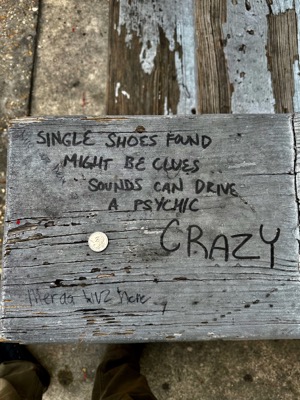 SINGLE SHOES FOUND
MIGHT BE CLUES
SOUNDS CAN DRIVE
A PSYCHIC
CRAZY
Merda wuz here